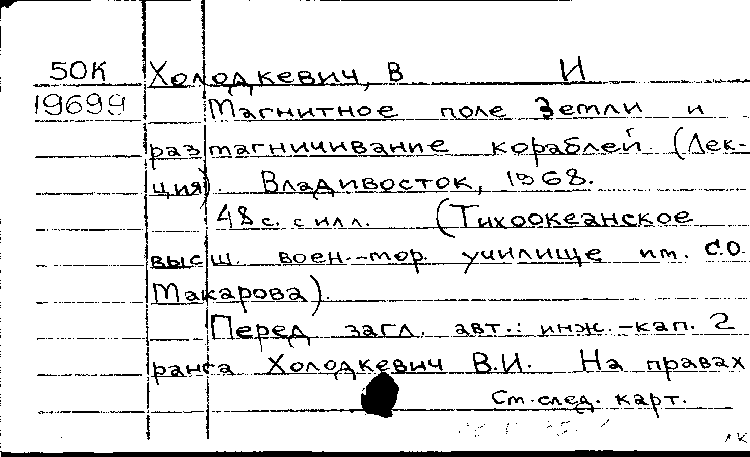 50К Холодкевич, В И
19699 Магнитное поле Земли и
размагничивание кораблей. (Лек-
ция). Владивосток, 1968.
48 с. с илл. (Тихоокеанское
высш. воен.-мор. училище им. С.О.
Макарова).
Перед загл. авт.: инж.-кап. 2
ранга Холодкевич В.И. На правах
См. след. карт.